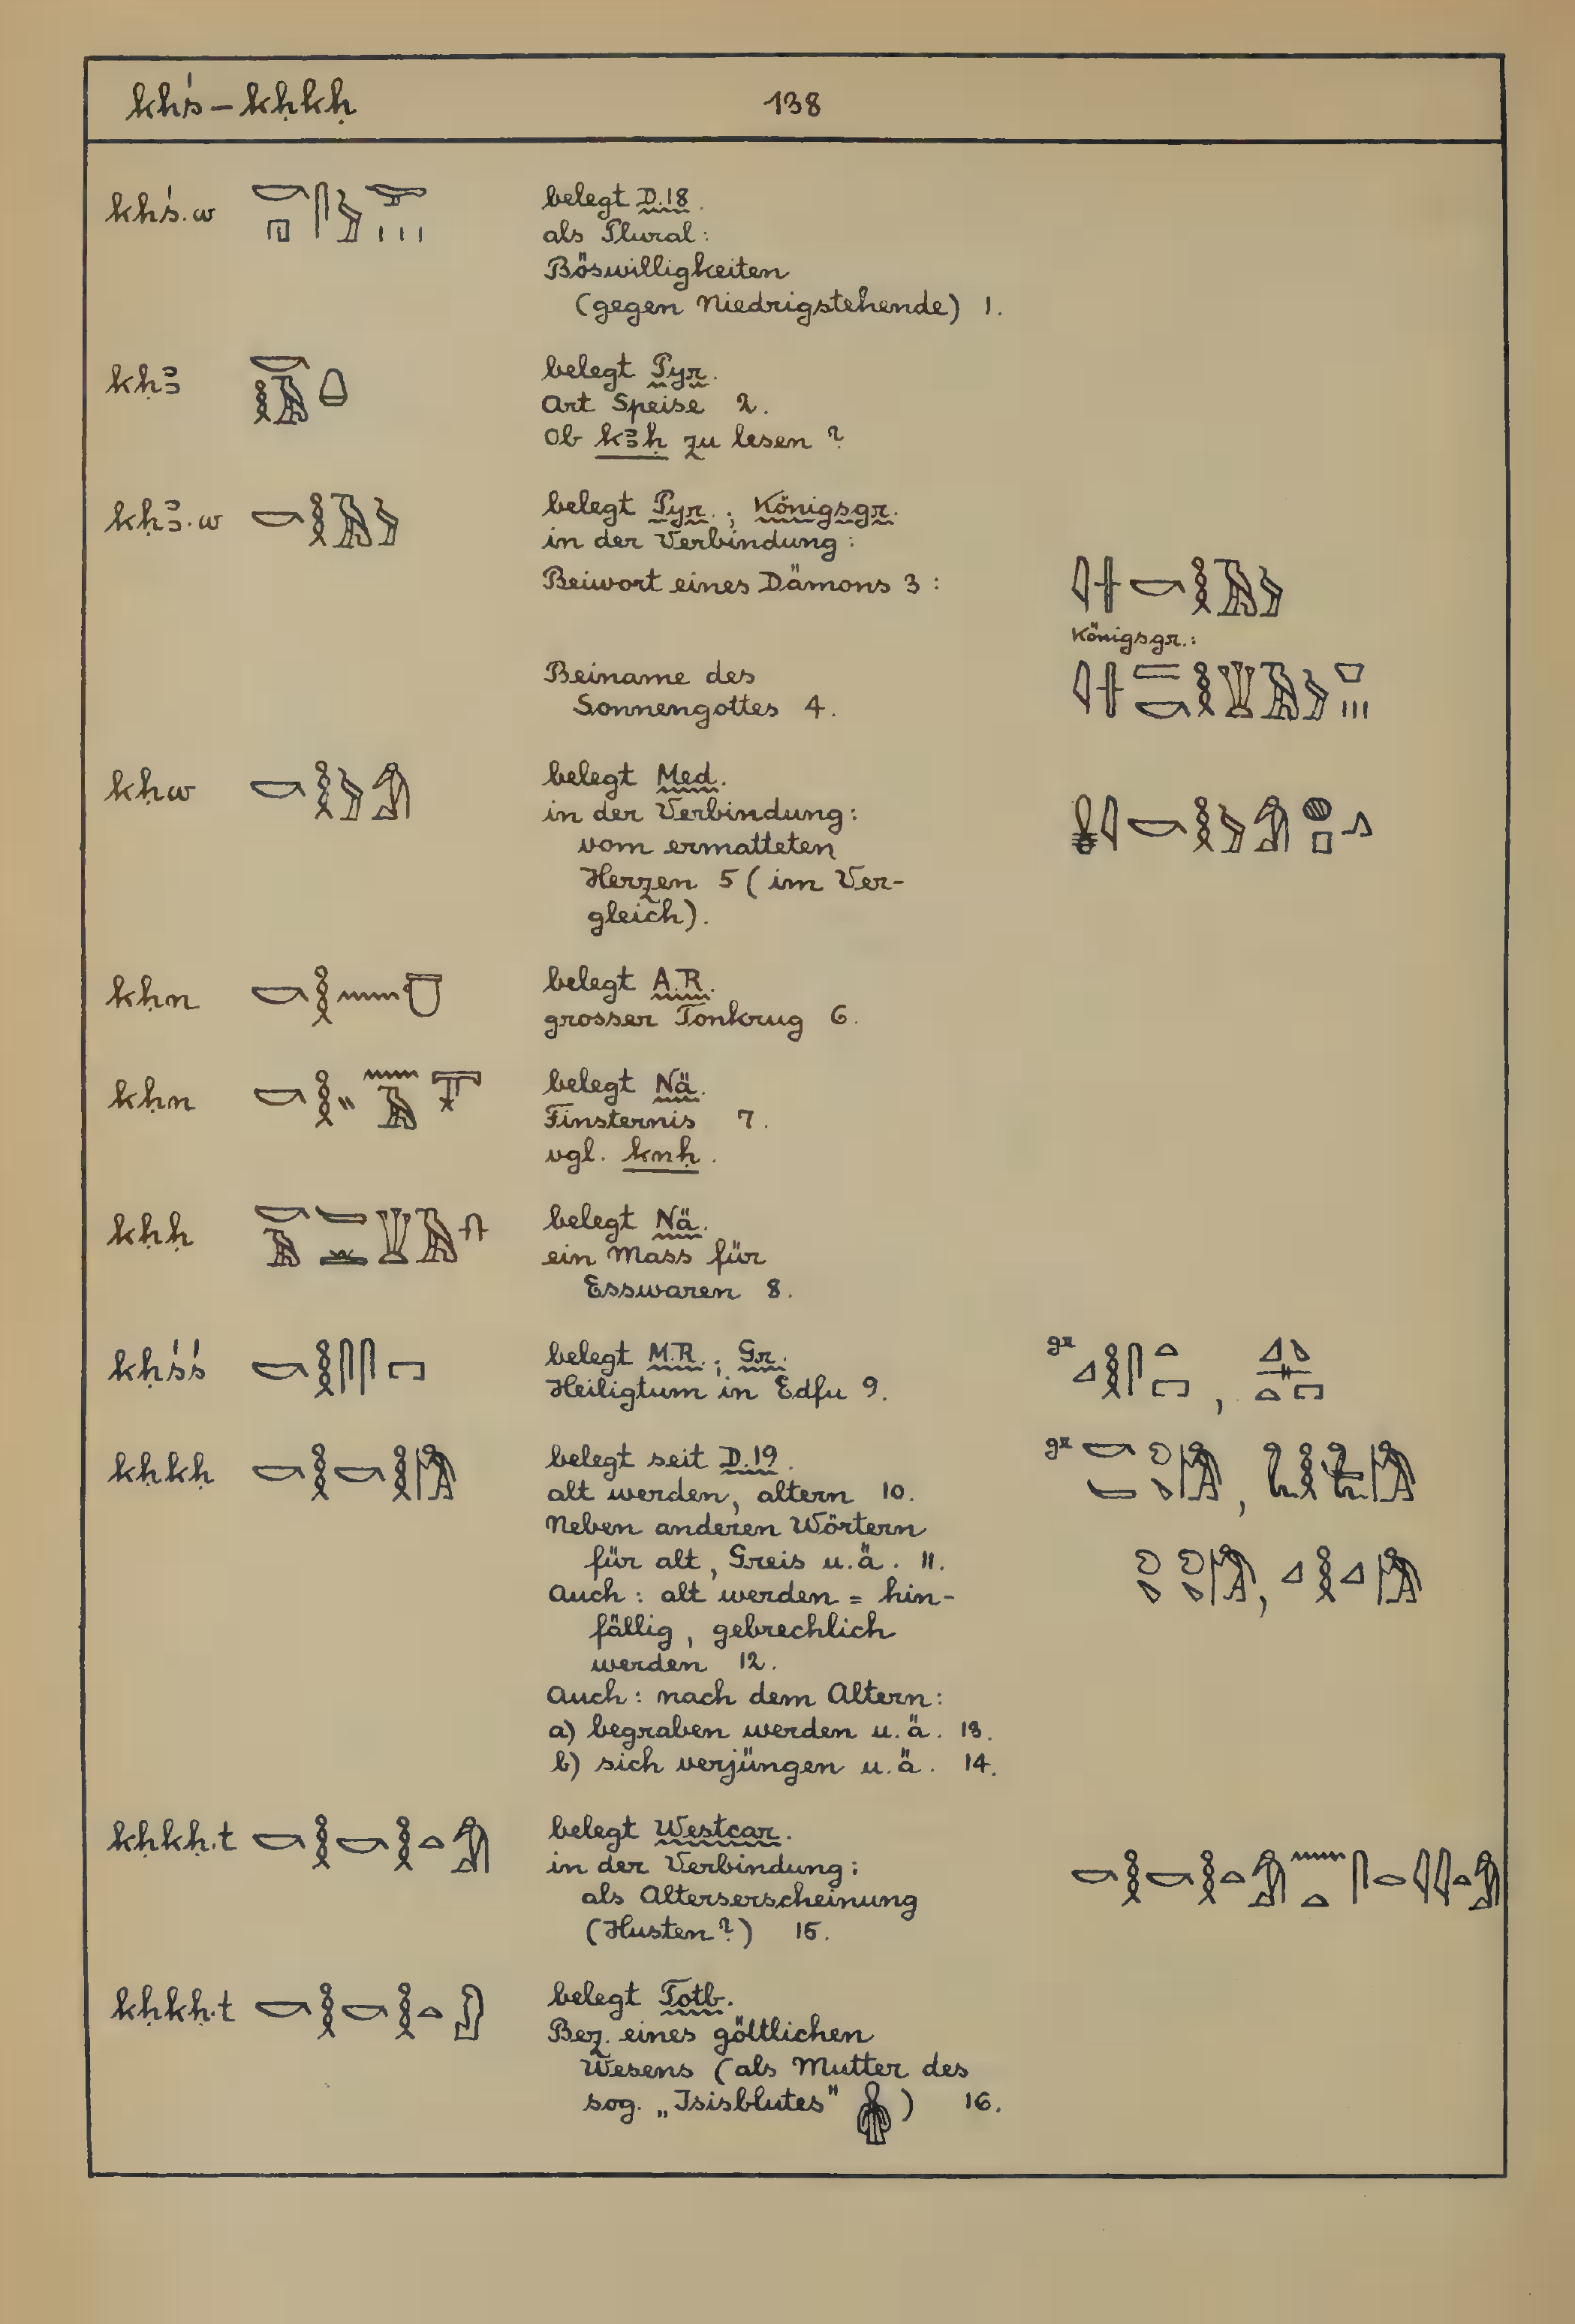 khś – kḥkḥ 138
khś.w 𓎡𓉔𓋴𓅱𓅪𓏥 belegt D.18.
als Plural:
Böswilligkeiten
(gegen Niedrigstehende) 1.
kḥꜣ belegt Pyr.
Art Speise 2.
Ob kꜣḥ zu lesen?
kḥꜣ.w 𓎡𓎛𓄿𓅱 belegt Pyr.; Königsgr.
in der Verbindung:
Beiwort eines Dämons 3: 𓇋𓐪𓎡𓎛𓄿𓅱
Königsgr.:
Beiname des
Sonnengottes 4.
kḥw 𓎡𓎛𓅱𓀗 belegt Med.
in der Verbindung:
vom ermatteten
Herzen 5 (im Ver-
gleich).
kḥn 𓎡𓎛𓈖 belegt A.R.
grosser Tonkrug 6.
kḥn belegt Nä.
Finsternis 7.
vgl. knḥ.
kḥḥ belegt Nä.
ein Mass für
Esswaren 8.
kḥśś 𓎡𓎛𓋴𓋴𓉐 belegt M.R.; Gr.:
Heiligtum in Edfu 9. gr 𓈎𓎛𓋴𓏏𓉐,
kḥkḥ 𓎡𓎛𓎡𓎛𓀗 belegt seit D.19. gr
alt werden, altern 10.
Neben anderen Wörtern
für alt, Greis u.ä. 11.
𓈎𓎛𓈎𓀗
Auch: alt werden = hin-
fällig, gebrechlich
werden 12.
Auch: nach dem Altern:
a) begraben werden u.ä. 13.
b) sich verjüngen u.ä. 14.
kḥkḥ.t 𓎡𓎛𓎡𓎛𓏏𓀗 belegt Westcar.
in der Verbindung: 𓎡𓎛𓎡𓎛𓏏𓀗𓈖𓏏𓋴𓂋𓇋𓇋𓏏𓀗
als Alterserscheinung
(Husten?) 15.
kḥkḥ.t 𓎡𓎛𓎡𓎛𓏏 belegt Totb.
Bez. eines göttlichen
Wesens (als Mutter des
sog. „Isisblutes" 𓎬) 16.